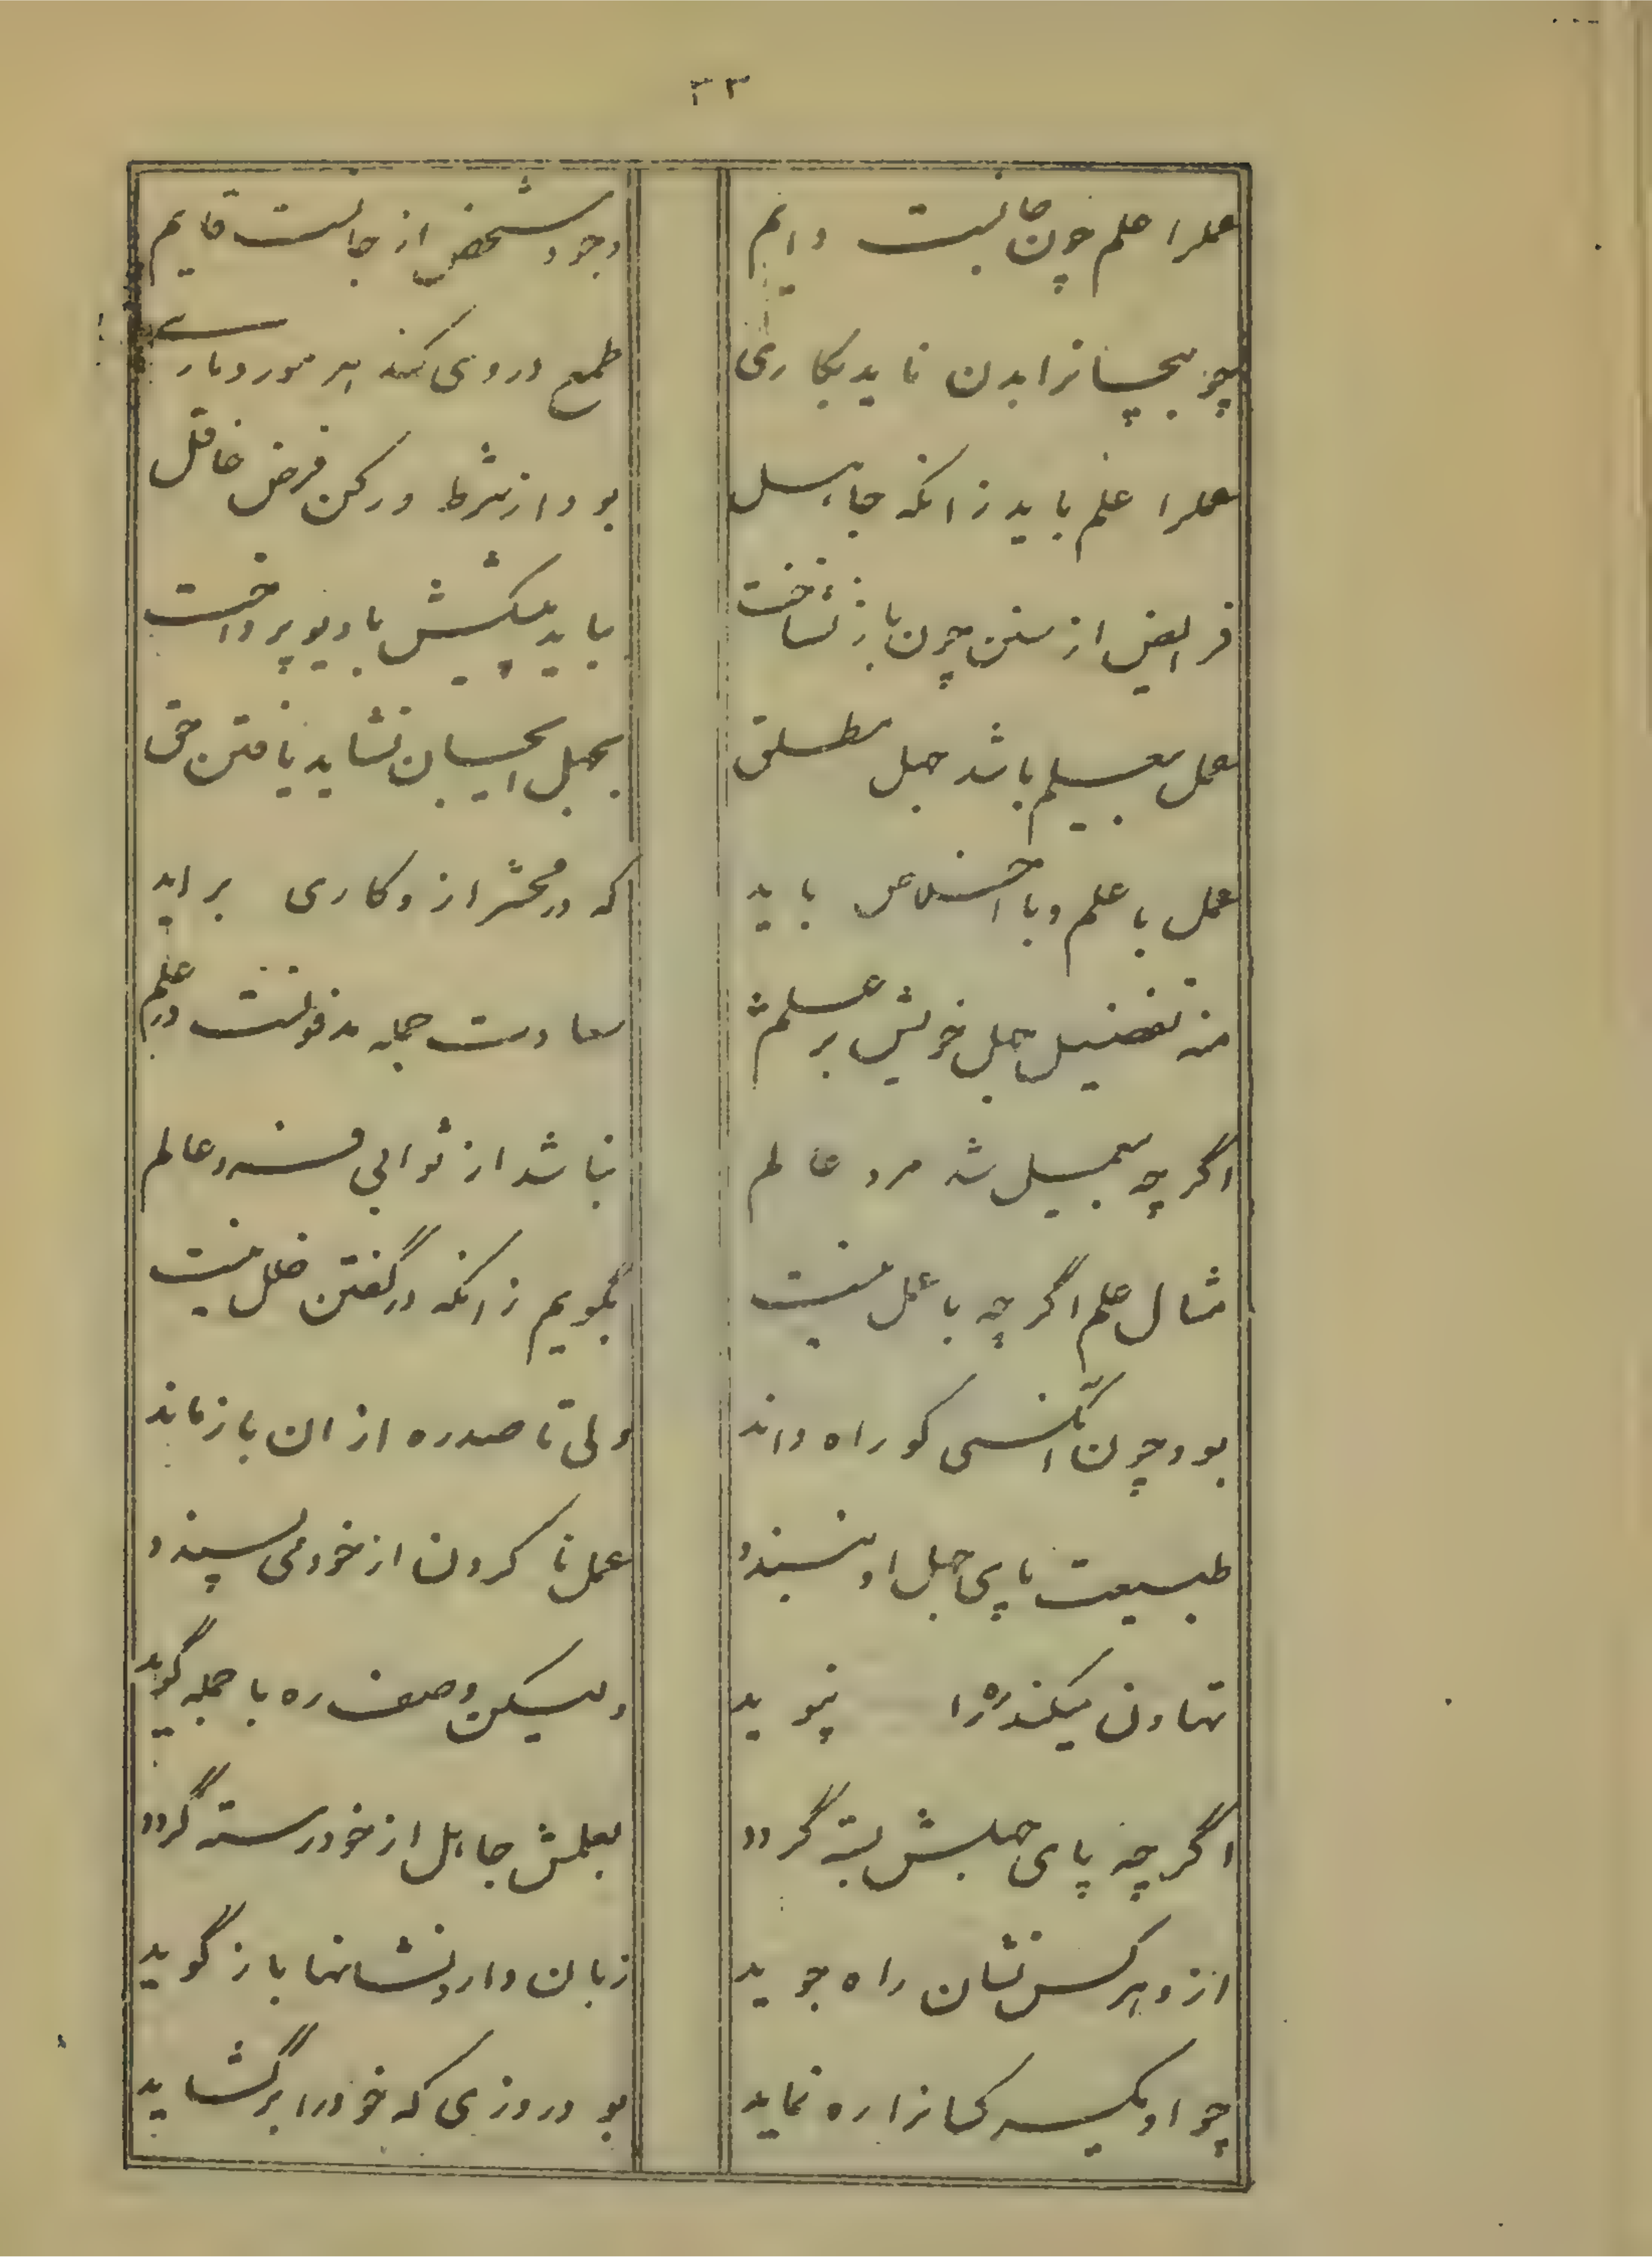 ۳۳
عملرا علم چون جانیست دایم وجود شخص از جانست قایم
چو بیجانرا بدن ناید بکاری طمع دروی کند هر مور و ماری
عملرا علم باید زانکه جاهل بود از شرط و رکن فرض غافل
فرایض از سنن چون باز نشناخت بباید پیشش با دیو پرداخت
عمل بیعلم باشد جهل مطلق بجهل ایجان نشاید یافتن حق
عمل با علم و با اخلاص باید که در محشر ازو کاری براید
منه تفضیل جهل خویش بر علم سعادت جمله مدفونست در علم
اگر چه بیعمل شد مرد عالم نباشد از ثوابی فرد عالم
مثال علم اگر چه با عمل نیست بگویم زانکه در گفتن خلل نیست
بود چون آنکسی کو راه داند ولی تا صد ره از ان باز ماند
طبیعت پای جهل او ببندد عمل نا کردن از خود می پسندد
تهاون میکند ره را نپوید ولیکن وصف ره با جمله گوید
اگر چه پای جهلش بسته گردد بعلمش جاهل از خود رسته گردد
ازو هر کس نشان راه جوید زبان دارد نشانها باز گوید
چو او یکسر کسانرا ره نماید بود روزی که خود را بر گشاید